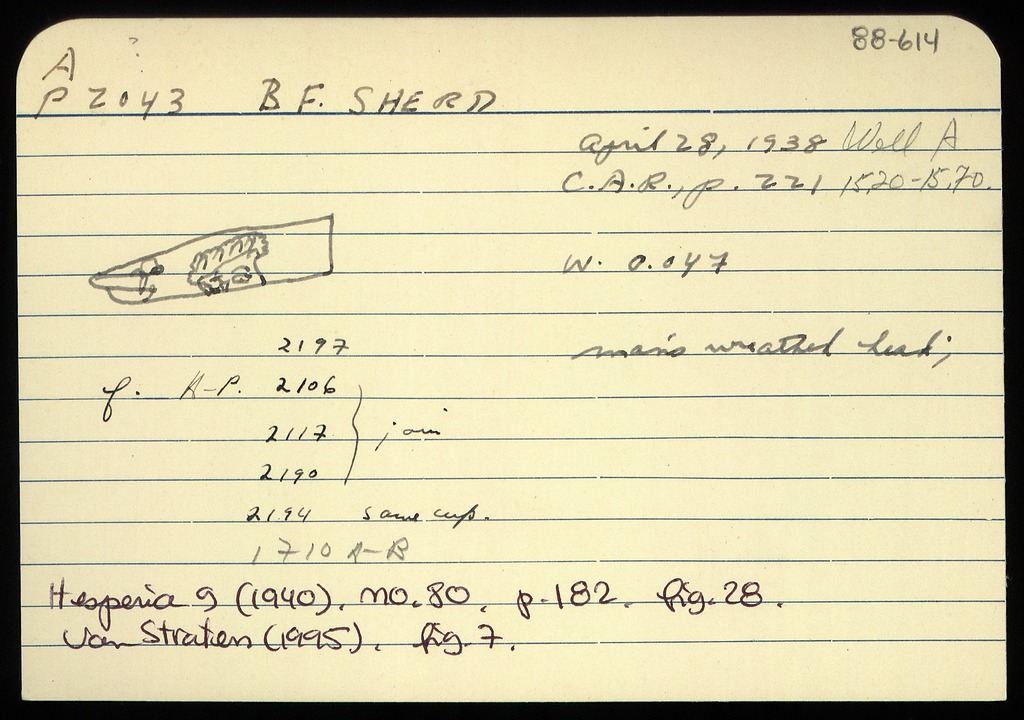 88-614
A ?
P 2043 B F. SHERD
April 28, 1938 Well A
C.A.R., p. 221 15.20-15.70.
W. 0.047
2197 man's wreathed head;
cf. A-P. 2106
2117 } join
2190
2194 same cup.
1710 A-B
Hesperia 9 (1940). no. 80. p. 182. fig. 28.
van Straten (1995). fig. 7.